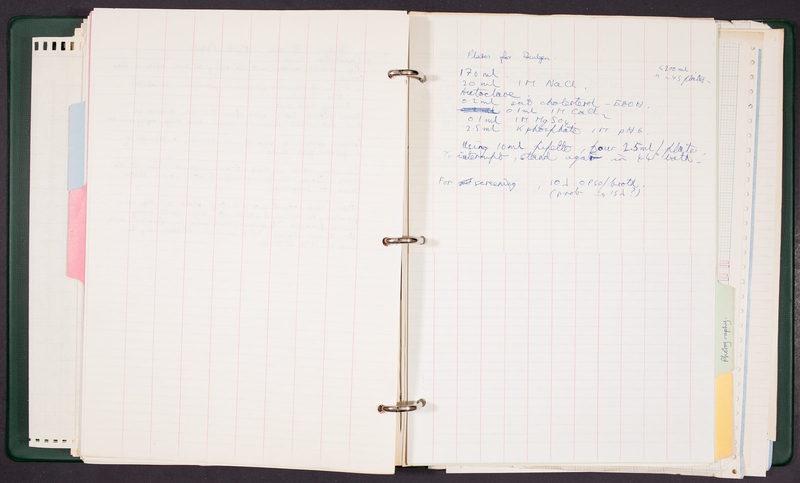 Plates for
≤200 ml
≡ ~45 plates
170 ml
20 ml 1M NaCl.
Autoclave.
0.2 ml sat cholesterol - EtOH.
0.1 ml 1M CaCl2
0.1 ml 1M MgSO4.
2.5 ml K phosphate 1M pH 6
Using 10ml pipette, pour 2.5ml/plate.
To interrupt, stand agar in 44° bath.
For screening, 10λ OP50/broth.
(prob 15λ?)
Photography